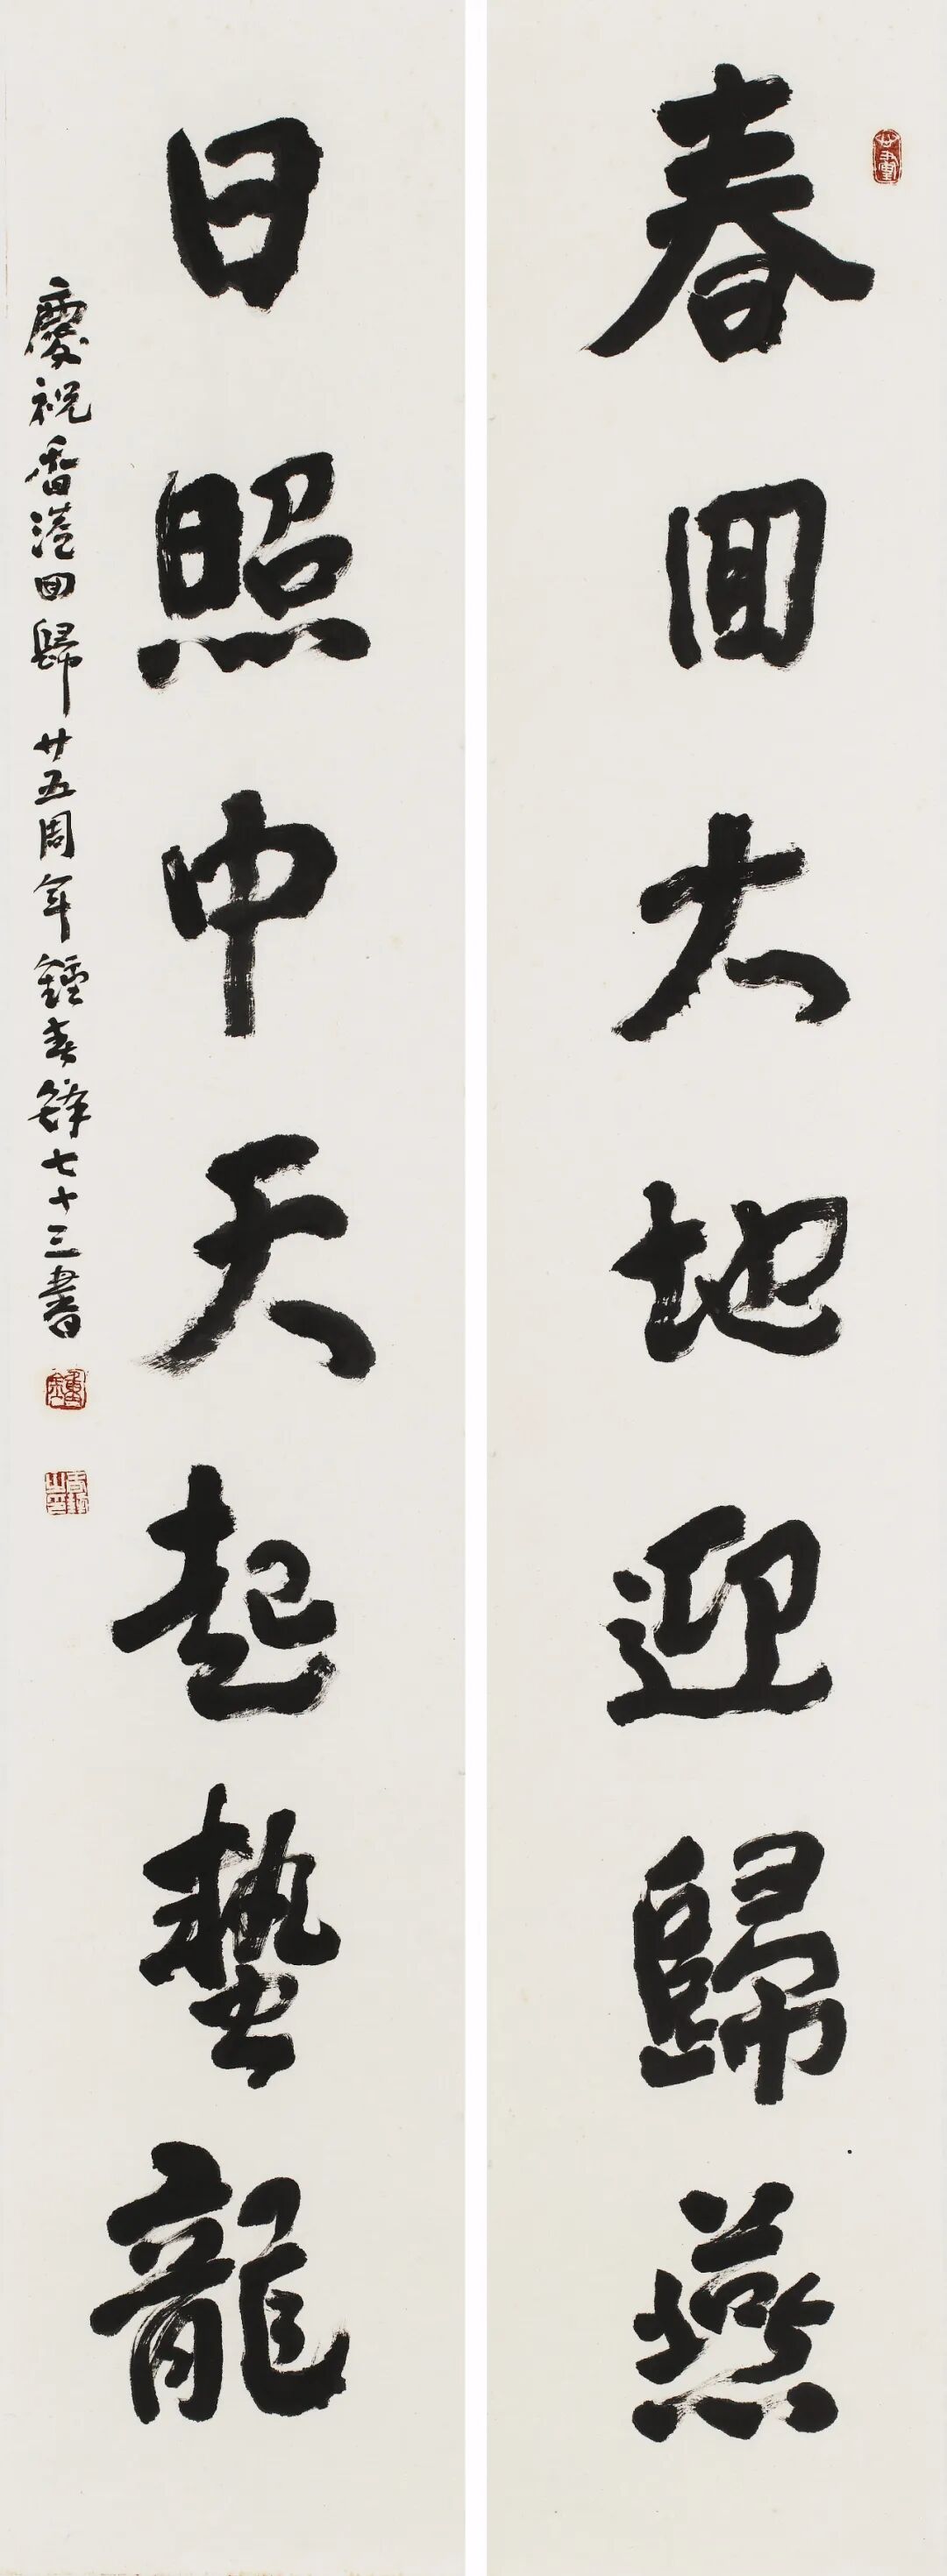 春回大地迎歸燕
日照中天起蟄龍
慶祝香港回歸廿五周年鍾春鋒七十三書